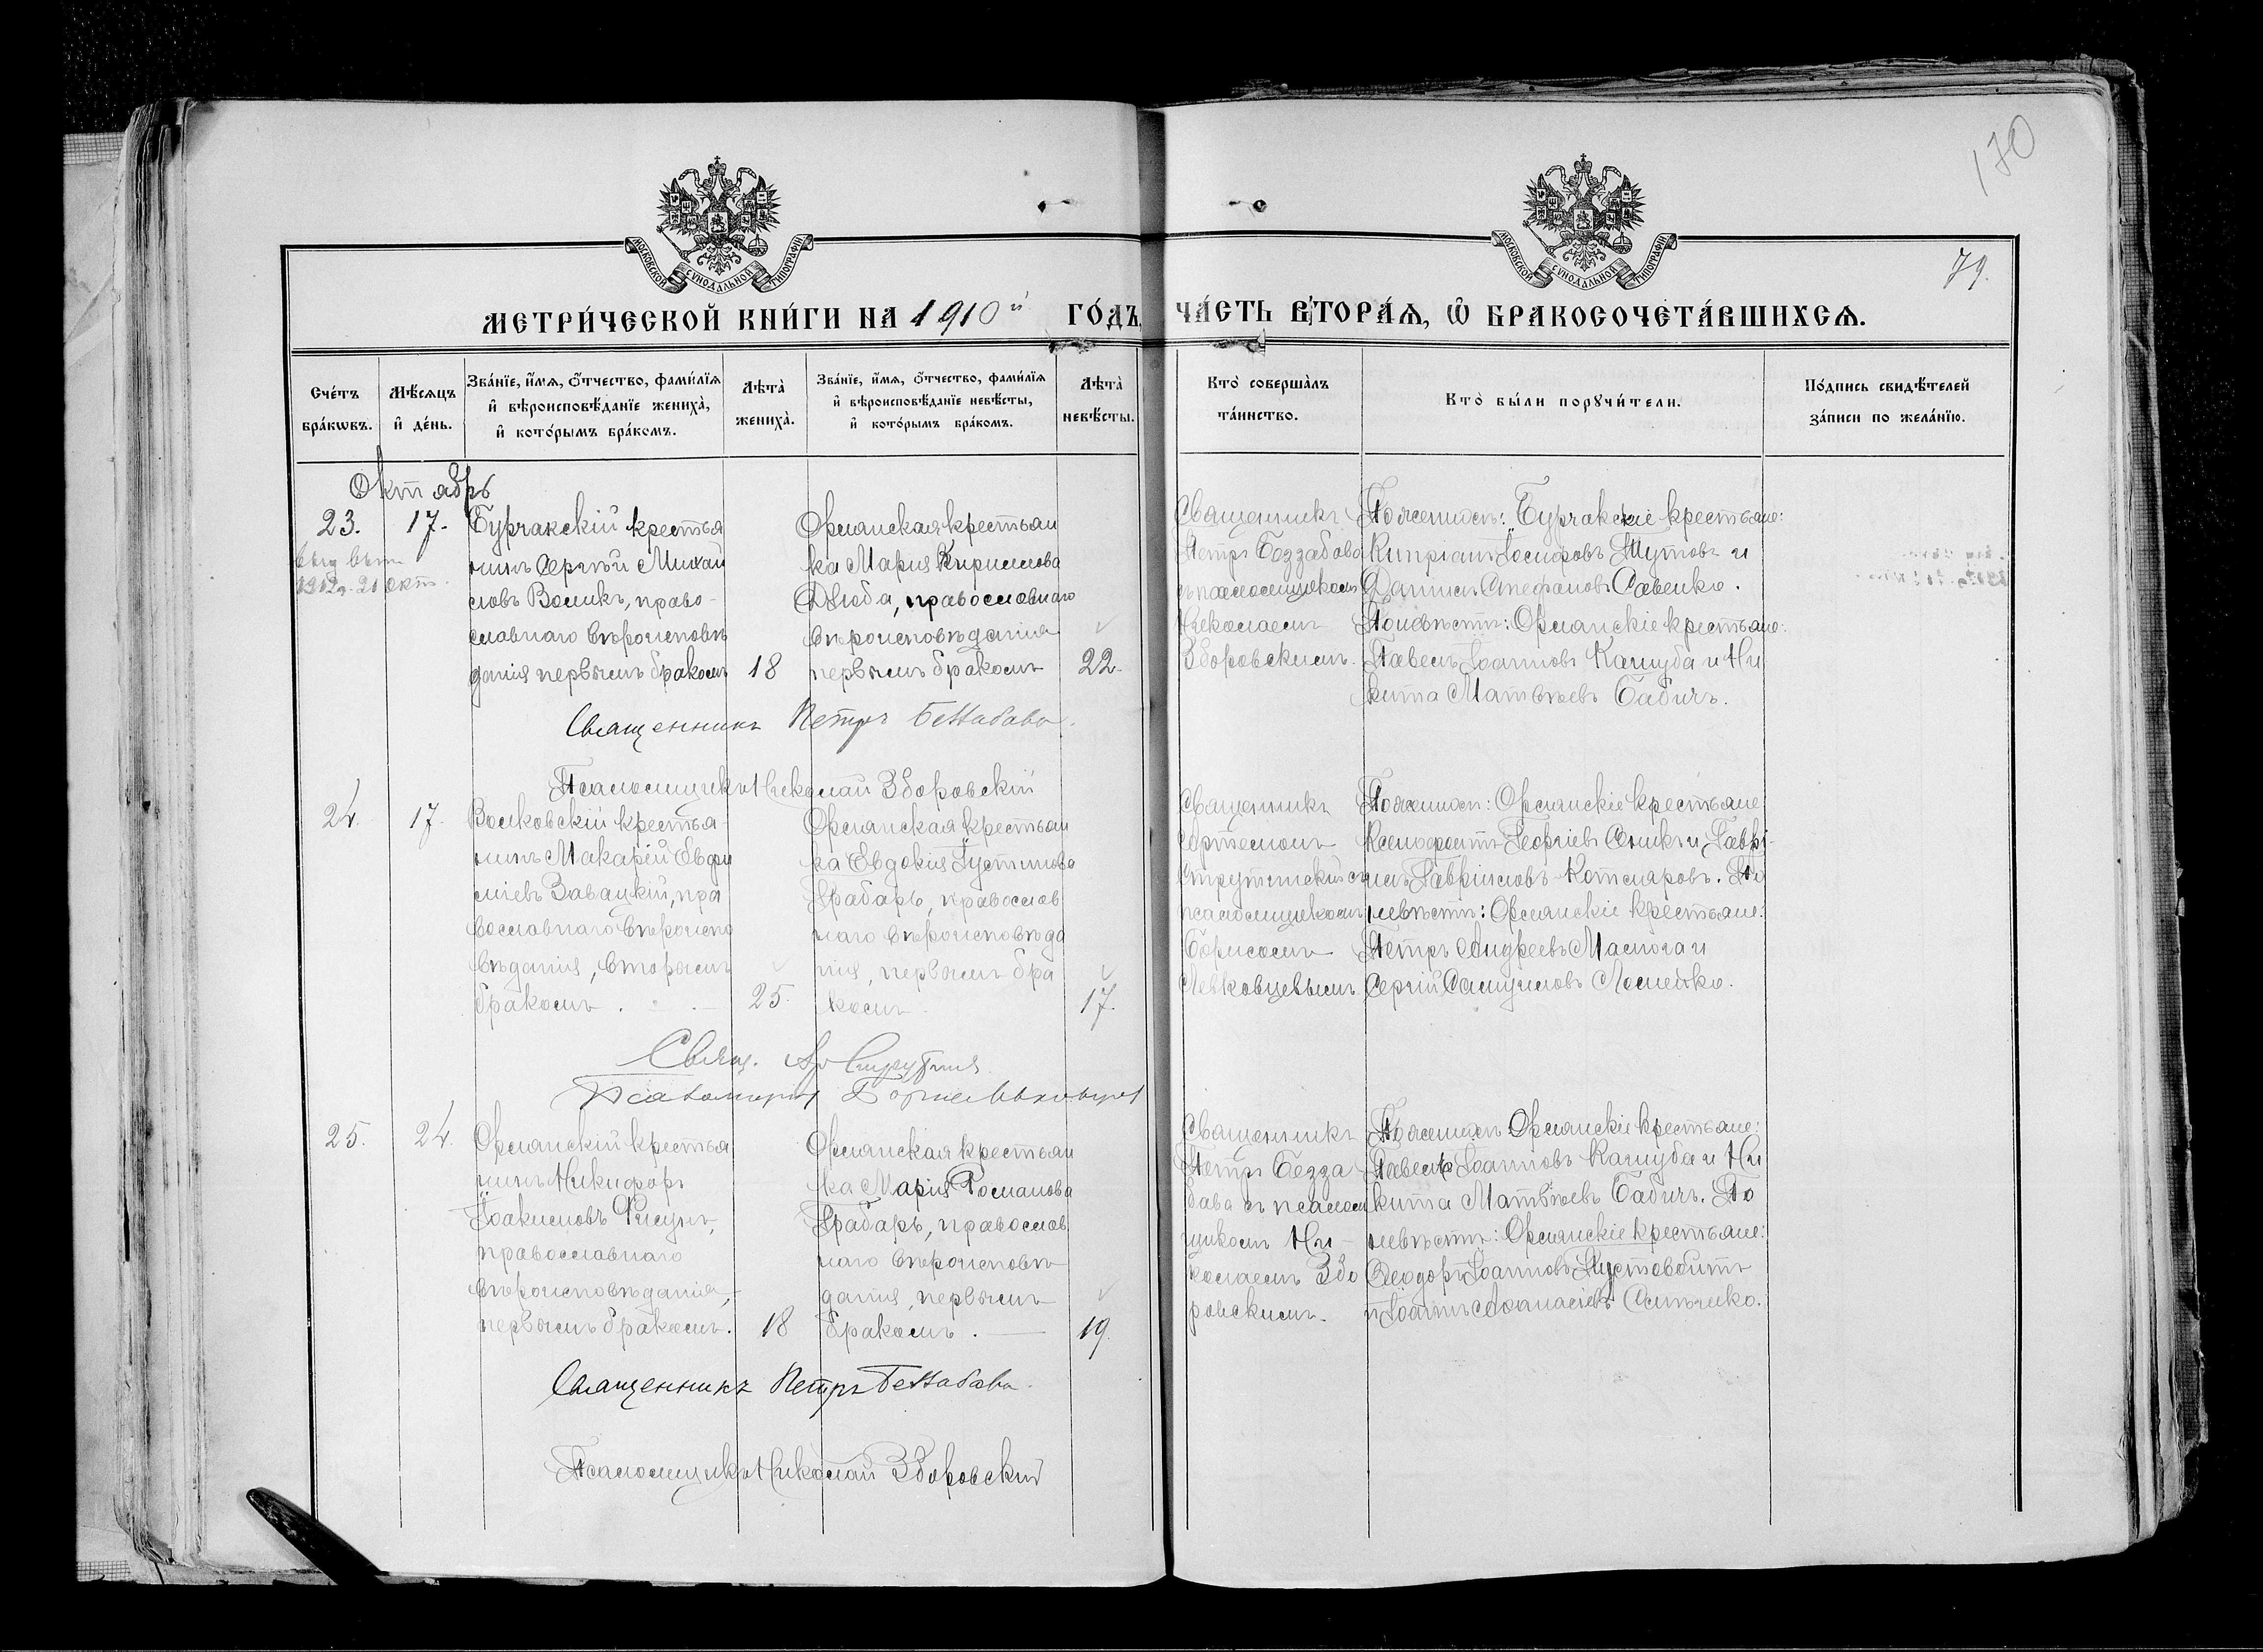 170
79.
МОСКОВСКОЙ СѴНОДАЛЬНОЙ ТИПОГРАФІИ
МОСКОВСКОЙ СѴНОДАЛЬНОЙ ТИПОГРАФІИ
МЕТРИ́ЧЕСКОЙ КНИ́ГИ НА 1910й ГО́ДЪ,
ЧА́СТЬ ВТОРА́Ѧ, Ѽ БРАКОСОЧЕТА́ВШИХСѦ.
Сче́тъ бра́кѡвъ.
Мѣ́сѧцъ и҆ де́нь.
Зва́нїе, и҆́мѧ, ѻ҆́тчество, фами́лїѧ
и҆ вѣроисповѣ́данїе женихà,
и҆ кото́рымъ бра́комъ.
Лѣтà женихà.
Зва́нїе, и҆́мѧ, ѻ҆́тчество, фами́лїѧ
и҆ вѣроисповѣ́данїе невѣ́сты,
и҆ кото́рымъ бра́комъ.
Лѣтà невѣ́сты.
Кто̀ совершàлъ
та́инство.
Кто̀ бы́ли порꙋчи́тели.
По́дпись свидѣ́телей
за́писи по жела́нїю.
Октябрь
23.
17.
1912 г. 21 Окт.
Бурчакскій крестья
нинъ Сергѣй Михай
ловъ Воликъ, право-
славнаго вѣроисповѣ
данія первымъ бракомъ
18
Орлянская крестьян
ка Марія Кириллова
Дзюба, православнаго
вѣроисповѣданія
первымъ бракомъ
22.
Священникъ
Петръ Беззабава
съ псаломщикомъ
Николаемъ
Зборовскимъ.
По женихѣ: Бурчакскіе крестьяне:
Кипріанъ Іосифовъ Тутовъ и
Даниилъ Стефановъ Савенко.
По невѣстѣ: Орлянскіе крестьяне:
Павелъ Іоанновъ Кашуба и Ни
кита Матвѣевъ Бабичъ.
Священникъ Петръ Беззабава.
Псаломщикъ Николай Зборовскій
24.
17.
Волковскій крестья
нинъ Макарій Евфи
міевъ Завацкій, пра
вославнаго вѣроиспо
вѣданія, вторымъ
бракомъ.
25.
Орлянская крестьян
ка Евдокія Іустинова
Грабарь, православ
наго вѣроисповѣда
нія, первымъ бра
комъ
17.
Священникъ
Артемонъ
псаломщикомъ
Борисомъ
Левковцевымъ
По женихѣ: Орлянскіе крестьяне:
Ксенофонтъ Георгіевъ Сѣникъ и Гаврі-
илъ Гавріиловъ Котляровъ. По
невѣстѣ: Орлянскіе крестьяне:
Петръ Андреевъ Маслюга и
Сергій Самуиловъ Ломейко.
Свящ. Ар. Струтинс
Псаломщикъ Борисъ Левковцевъ
25.
24.
Орлянскій крестья
нинъ Никифоръ
Іоакимовъ Фисунъ,
православнаго
вѣроисповѣданія,
первымъ бракомъ.
18
Орлянская крестьян
ка Марія Романова
Грабарь, православ
наго вѣроисповѣ
данія, первымъ
бракомъ.
19.
Священникъ
Петръ Безза
бава съ псалом
щикомъ Ни-
колаемъ Збо
ровскимъ.
По женихѣ Орлянскіе крестьяне:
Павелъ Іоанновъ Кашуба и Ни
кита Матвѣевъ Бабичъ. По
невѣстѣ: Орлянскіе крестьяне:
Ѳеодоръ Іоанновъ Пустовойтъ
и Іоаннъ Аѳанасіевъ
Священникъ Петръ Беззабава.
Псаломщикъ Николай Зборовскій